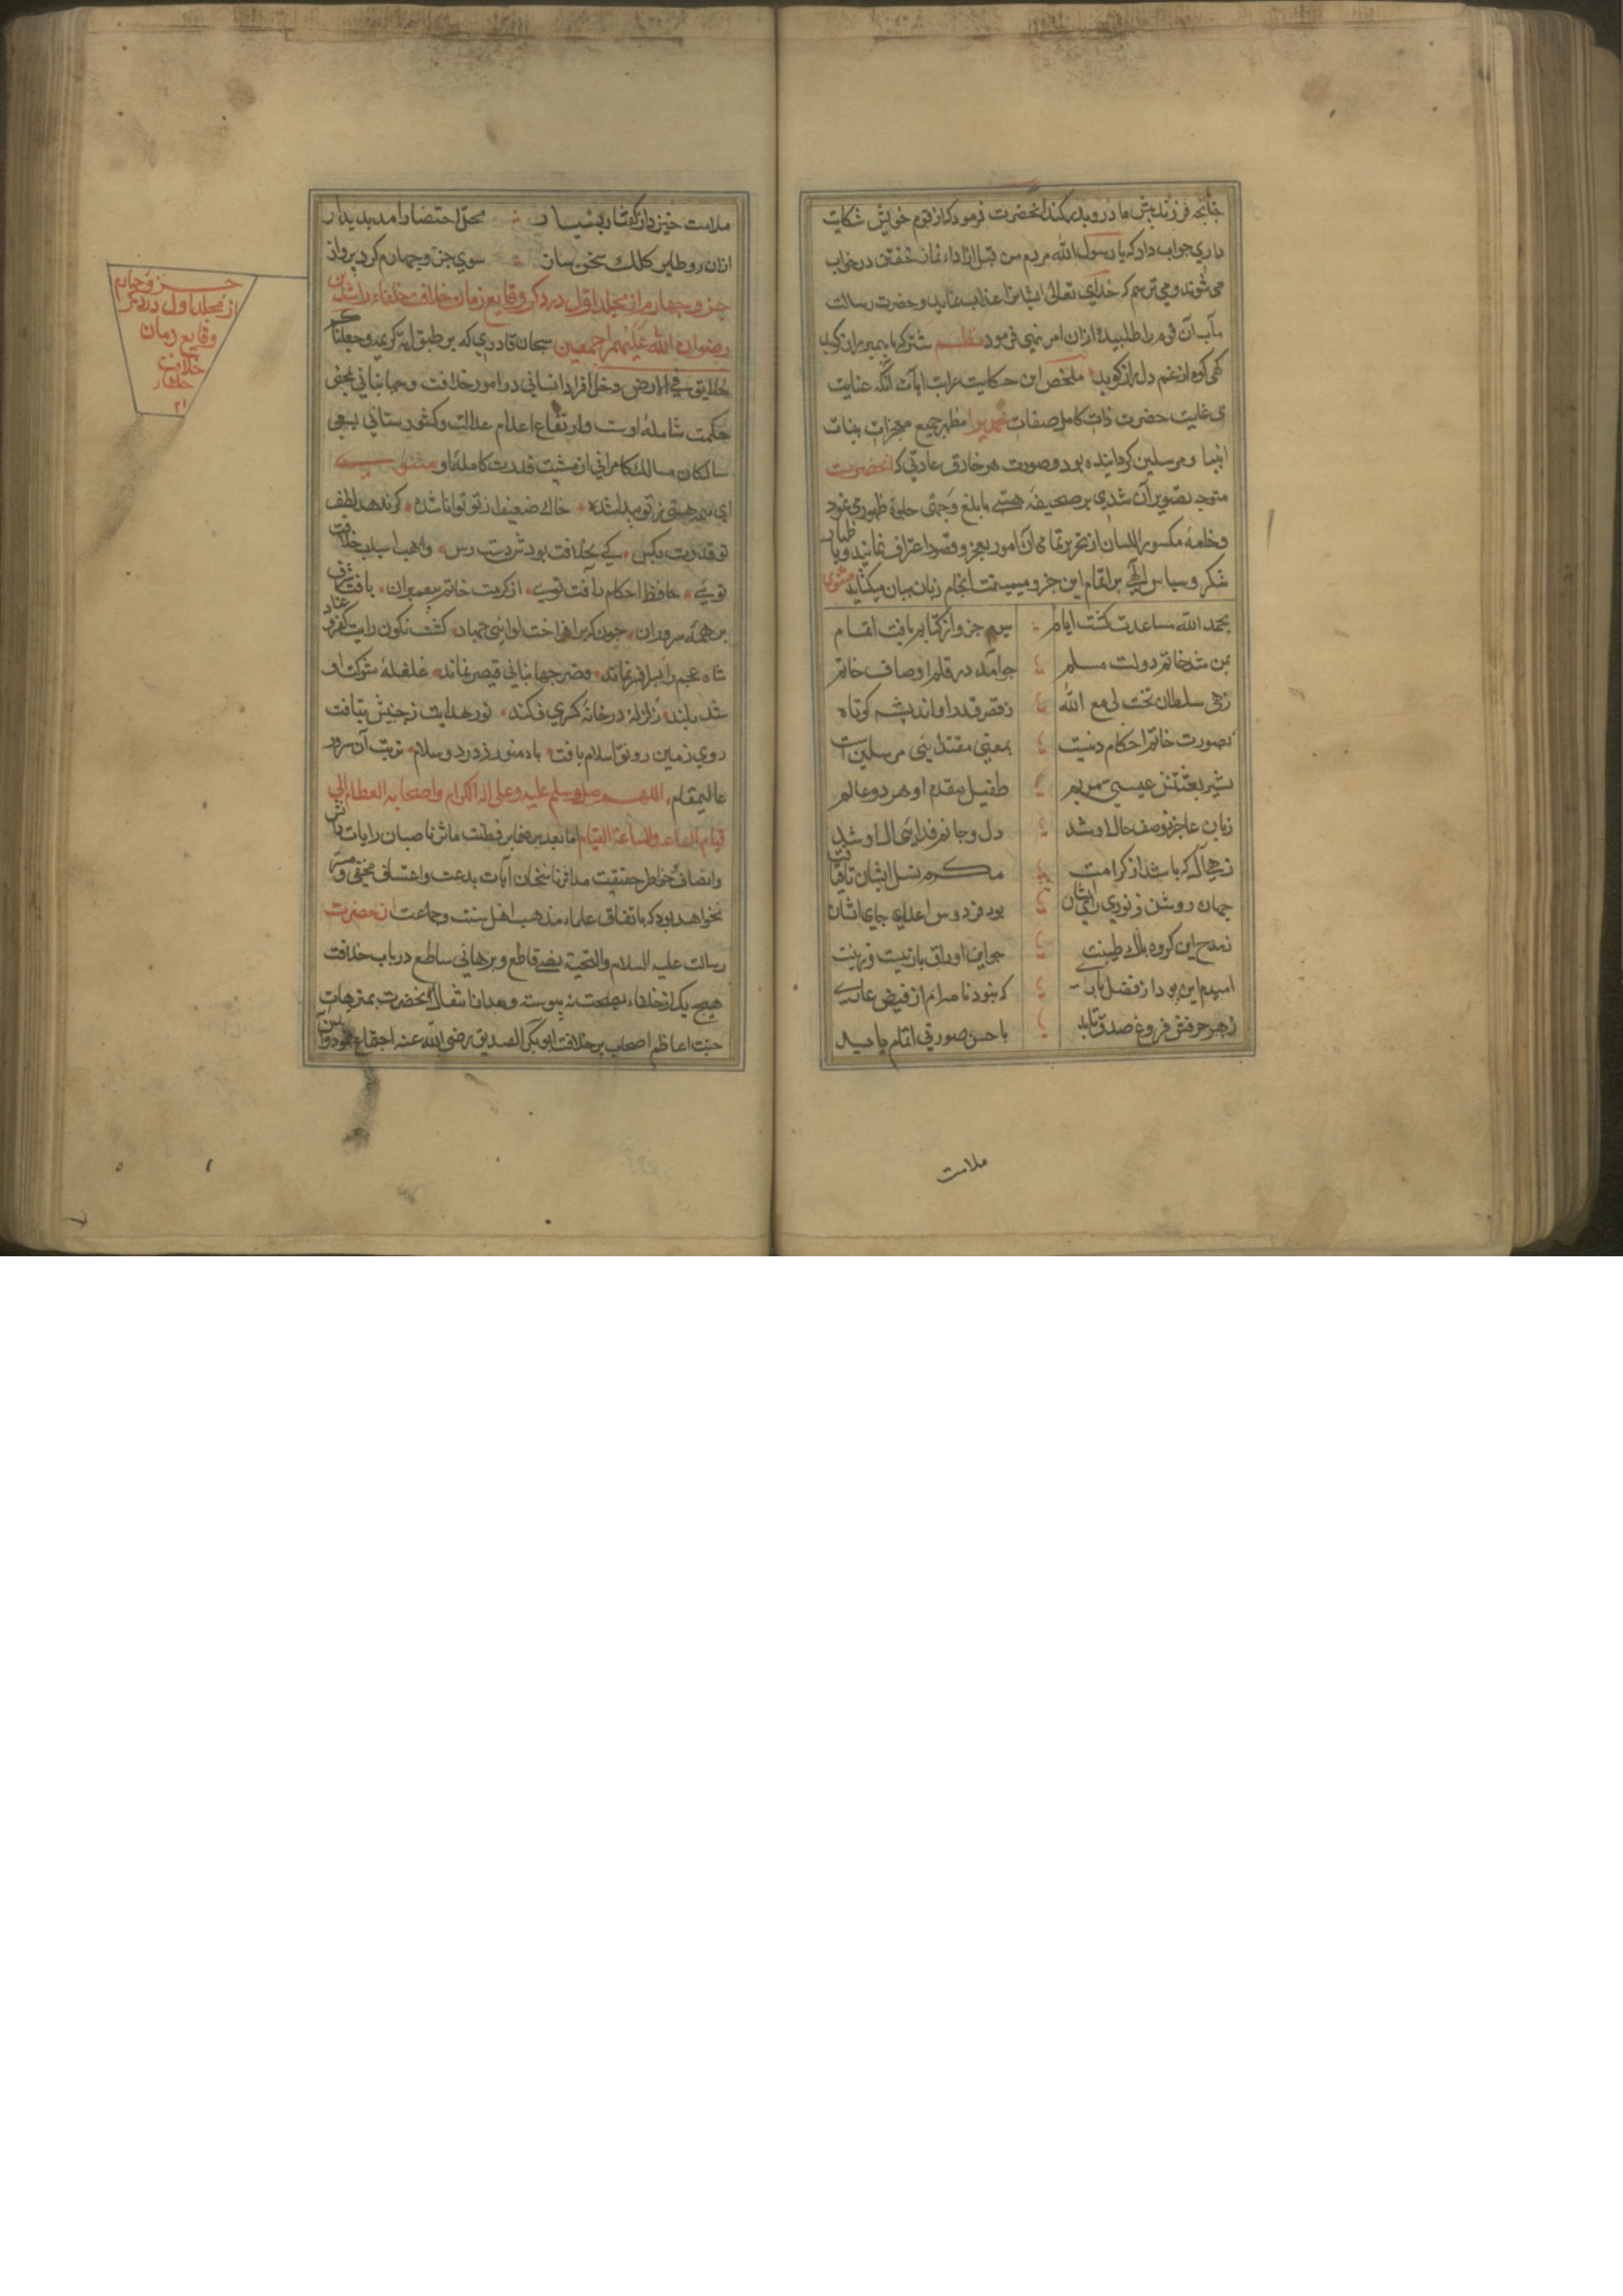 چنانچه فرزند پیش مادر وپدر کند آنحضرت فرمود که از قوم خویش شکایت
داری جواب داد که یا رسول الله مردم من قبل از اداء نماز خفتن در خواب
می شوند و می ترسم که خدای تعالی ایشانرا عذاب نماید و حضرت رسالت
مآب آن قوم را طلبیده ازان امر نهی فرمود نظم شتر که با پیمبر راز کوید
کهی کوه از غم دل باز کوید ملخص این حکایت غرابت آیات آنکه عنایت
بی غایت حضرت ذات کامل صفات محمدیرا مظهر جمیع معجزات بینات
انبیا و مرسلین کردانیده بود و صورت هر خارق عادتی که آنحضرت
متوجه تصویر آن شدی بر صحیفه هستی بابلغ وجهی جلوه ظهور می نمود
و خامه مکسور اللسان از تحریر تمامی آن امور بعجز و قصور اعتراف نماید و با
شکر و سپاس الهی بر اتمام این جزو میمنت انجام زبان بیان میکشاید مثنوی
بحمد الله مساعدت کشت ایام سیم جزو از کتابم یافت اتمام
بمن شد خاتم دولت مسلم جو آمد در قلم اوصاف خاتم
زهی سلطان تخت لی مع الله ز قصر قدر او اندیشه کوتاه
بصورت خاتم احکام دینست بمعنی مقتدای مرسلین است
بشیر بعثتش عیسی مریم طفیل مقدم او هر دو عالم
زبان عاجز بوصف حال او شد دل و جانم فدای آل او شد
زهی آل که باشد از کرامت مکرم نسل ایشان تا قیامت
جهان روشن ز نور رای ایشان بود فردوس اعلی جای ایشان
ز مدح این کروه پاک طینت جو این اوراق با زیب و زینت
امیدم این بود از فضل باری که نبود نامه ام از فیض عاری
ز هر حرفش فروغ صدق تابد باحسن صورتی اتمام یابد
ملامت
ملامت خیزد از کفتار بسیار محل اختصار آمد پدیدار
ازان رو طایر کلک سخن ساز سوی جزو چهارم کرد پرواز
جزو چهارم از مجلد اول در ذکر وقایع زمان خلافت خلفاء راشدین
رضوان الله علیهم اجمعین سبحان قادری که بر طبق آیه کریمه وجعلناکم
خلایق فی الارض دخل افراد انسانی در امور خلافت و جهانبانی بمحض
حکمت شامله اوست و ارتفاع اعلام عدالت و کشورستانی بسعی
سالکان مسالک کامرانی از مشیت قدرت کامله او مثنوی
ای همه هستی ز تو پیدا شده خاک ضعیف از تو توانا شده کر ندهد لطف
تو قدرت بکس کی بخلافت بودش دست رس واهب اسباب خلافت
تویی حافظ احکام رأفت تویی از کرمت خاتم پیغمبران یافت شرف
بر همه سروران چون کبر افراخت لوا در جهان کشت نکون رایت کفر و عناد
شاه عجم را بسر افسر نماند قصر جهانبانی قیصر نماند غلغله شوکت او
شد بلند زلزله در خانه کسری فکند نور هدایت ز جبینش بتافت
روی زمین رونق اسلام یافت باد منور ز درود و سلام تربت آن سرور
عالیمقام اللهم صل وسلم علیه وعلی آله الکرام واصحابه العظام الی
قیام الساعه والساعة القیام اما بعد بر ضمایر فطنت مآثر ناصبان رایات دانش
وانصاف و خاطر حقیقت مآثر ناسخان آیات بدعت و اعتساف مخفی و مستتر
نخواهد بود که باتفاق علماء مذهب اهل سنت و جماعت از حضرت
رسالت علیه السلام والتحیة نص قاطع و برهانی ساطع در باب خلافت
هیچ یک از خلفاء بصحت نه پیوسته و بعد از انتقال آنحضرت بمنزهات
جنت اعاظم اصحاب بر خلافت ابو بکر الصدیق رضی الله عنه اجتماع نمودند
جزو چهارم
از مجلد اول در ذکر
وقایع زمان
خلافت
خلفاء